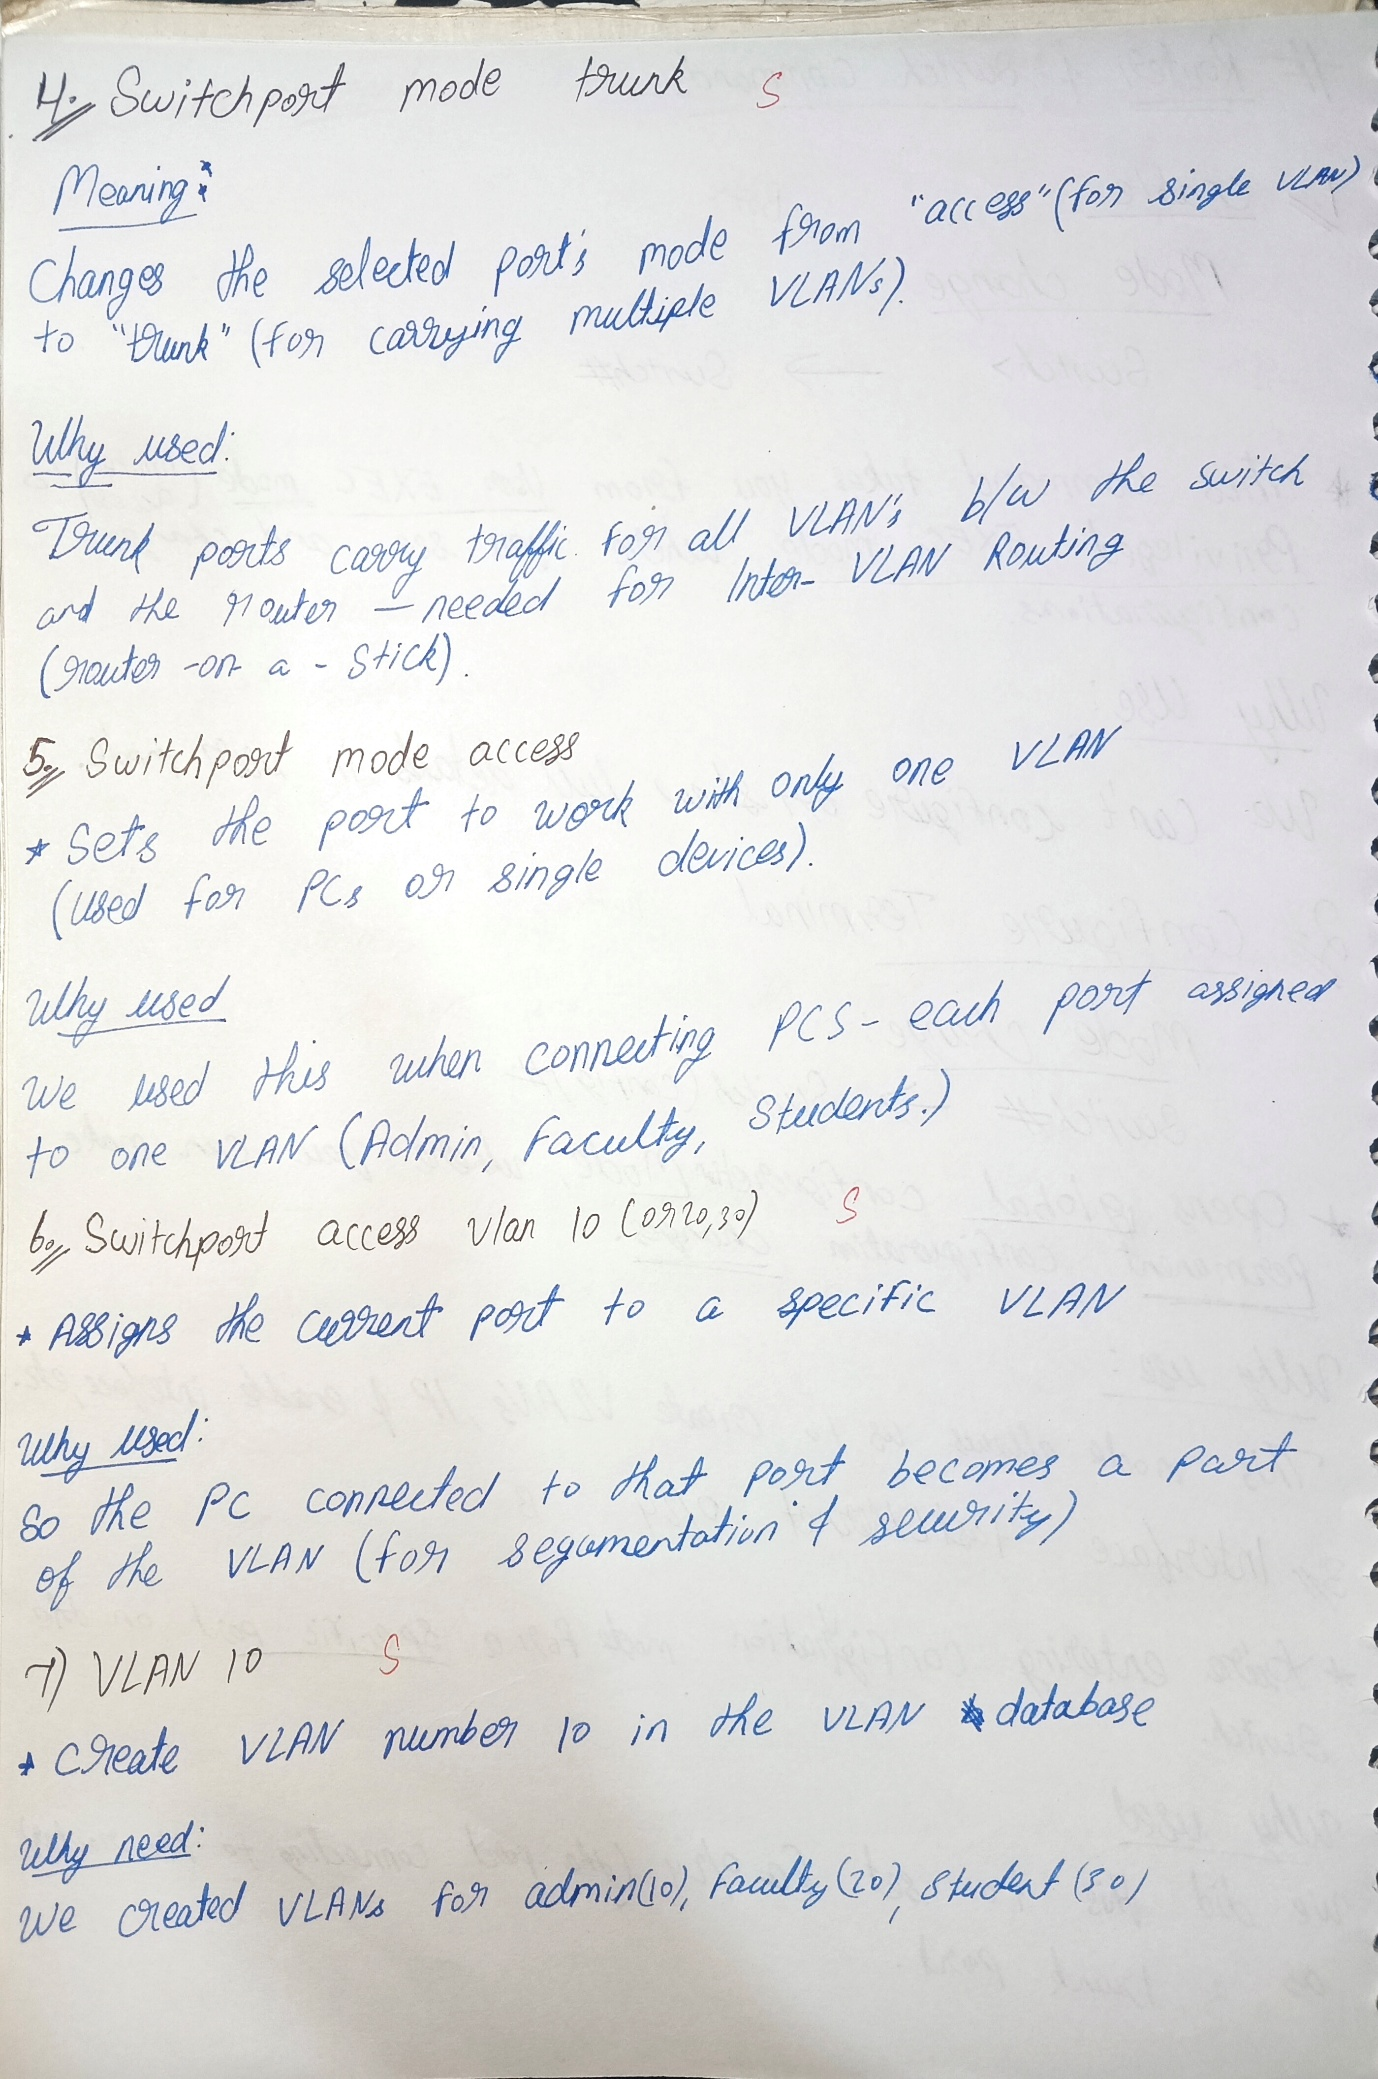 4. Switchport mode trunk S
Meaning:
Changes the selected port's mode from "access" (for single VLAN)
to "trunk" (for carrying multiple VLANs).
Why used:
Trunk ports carry traffic for all VLAN's b/w the switch
and the router - needed for Inter-VLAN Routing
(router-on a - stick).
5. Switchport mode access
* Sets the port to work with only one VLAN
(used for PCs or single devices).
Why used
We used this when connecting PCS - each port assigned
to one VLAN (Admin, Faculty, Students.)
6. Switchport access vlan 10 (or 20,30) S
* Assigns the current port to a specific VLAN
Why used:
So the PC connected to that port becomes a part
of the VLAN (for segamentation & security)
7) VLAN 10 S
* Create VLAN number 10 in the VLAN database
Why need:
We created VLANs for admin(10), Faculty (20), Student (30)